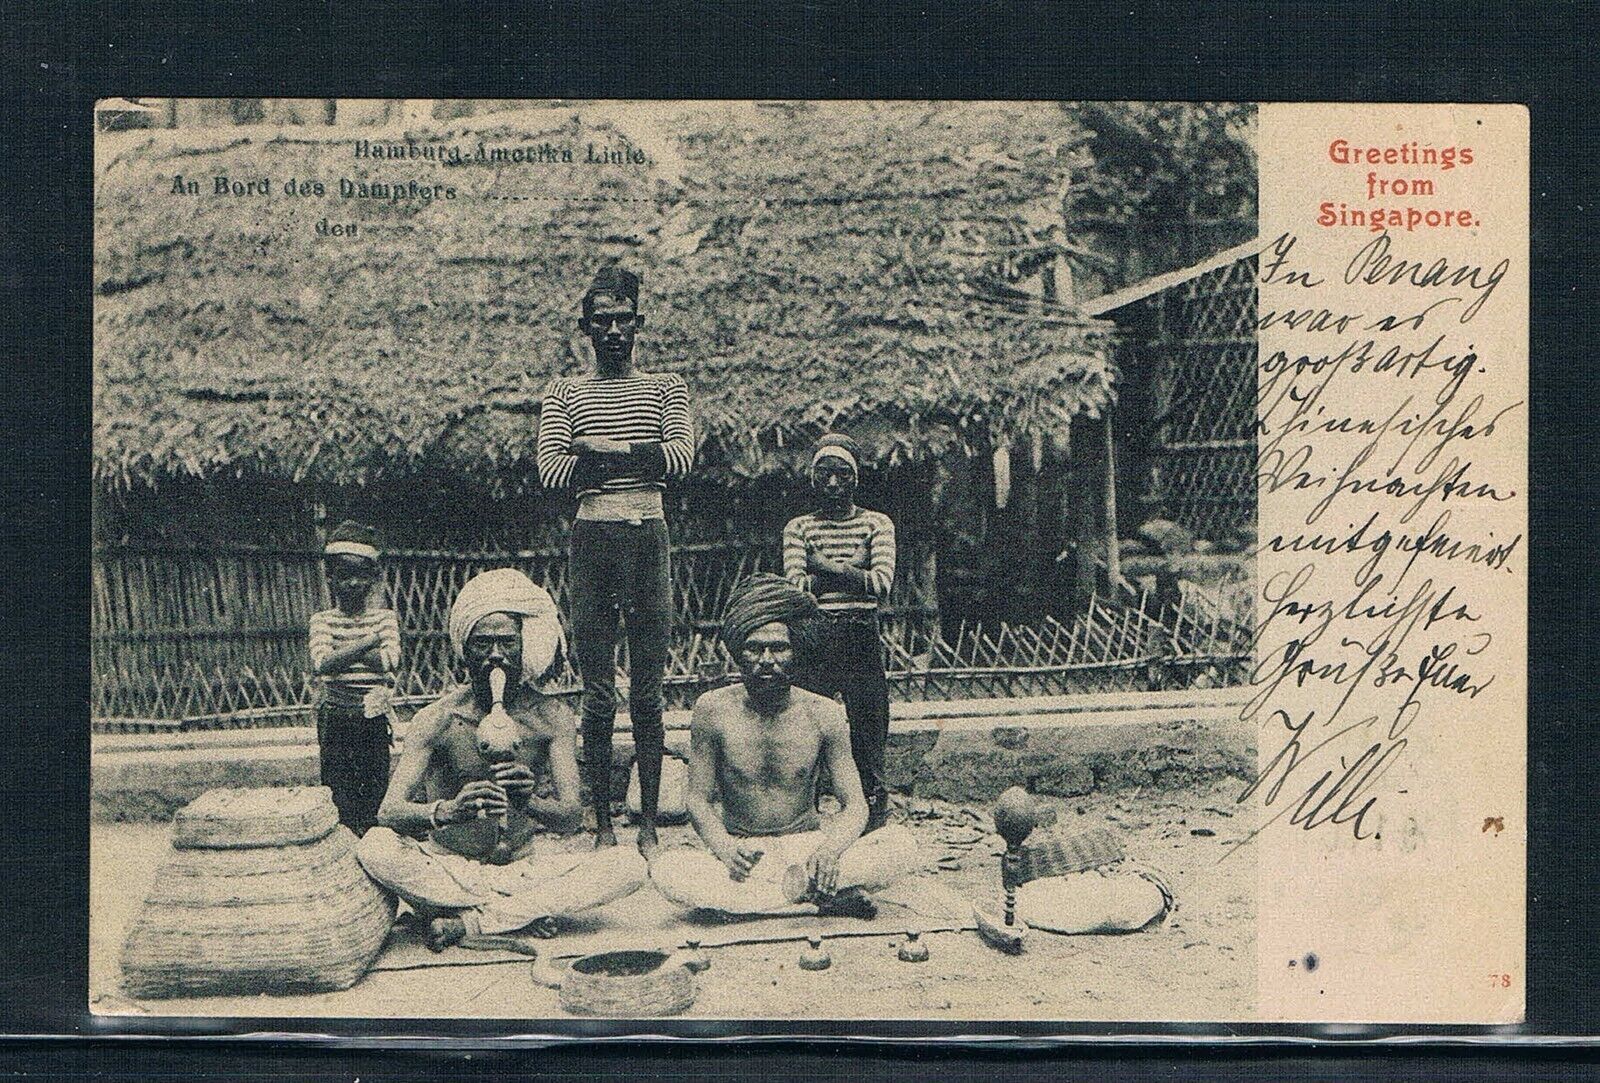 Hamburg-Amerika Linie.
An Bord des Dampfers
den
Greetings
from
Singapore.
In Penang
war es
großartig.
Chinesisches
Weihnachten
mitgefeiert.
Herzlichste
Grüße Euer
Willi.
78